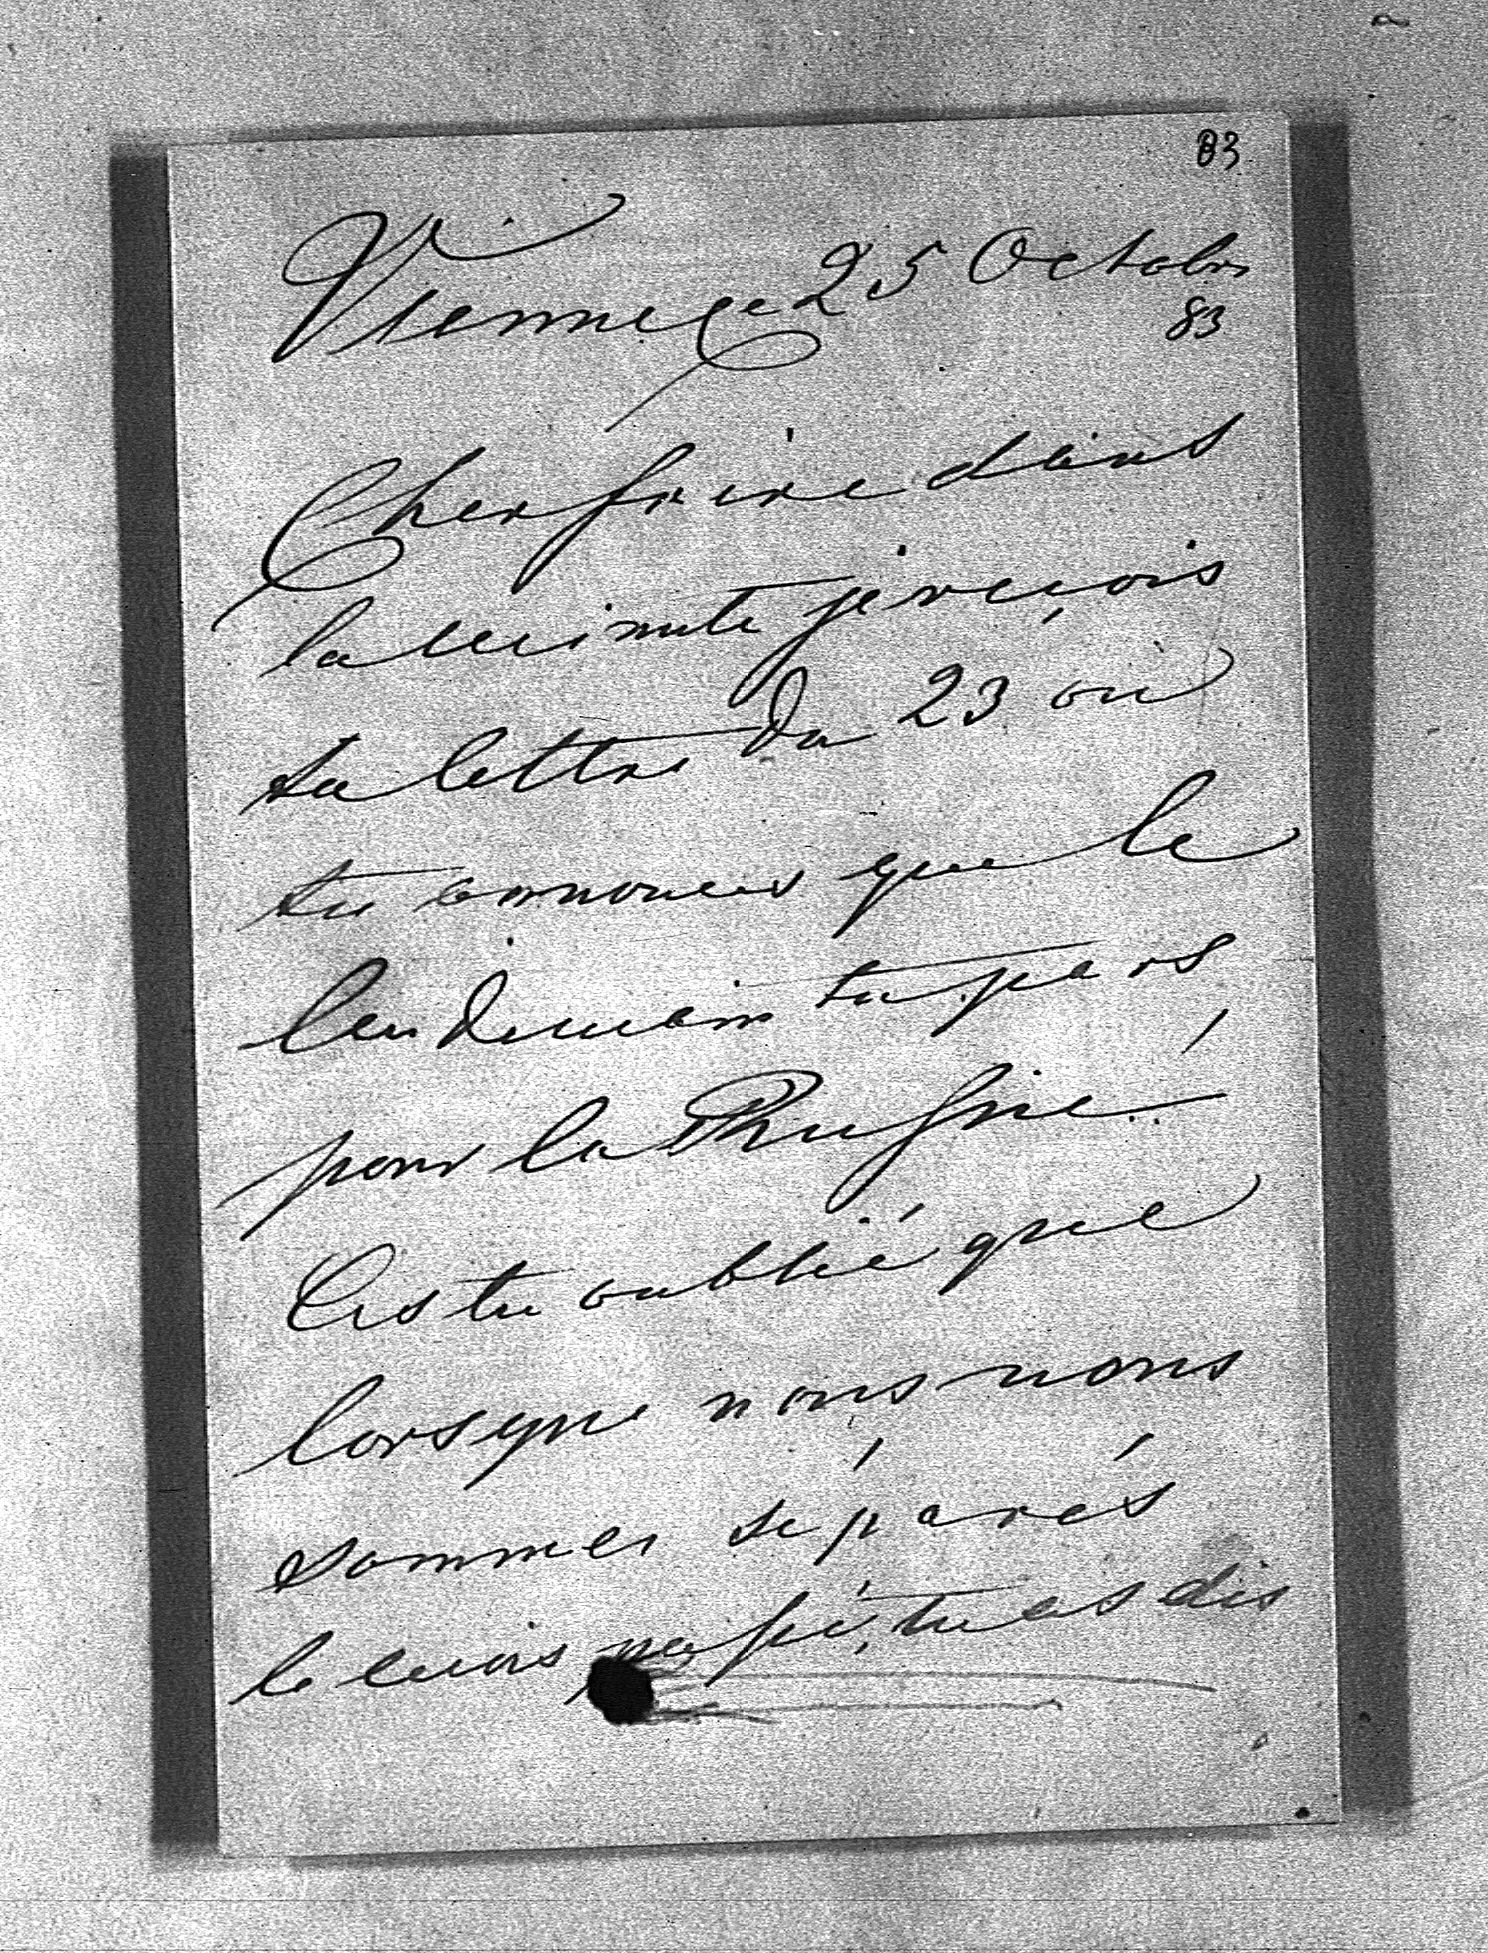 83
Vienne ce 25 Octobre
83
Cher frère dans
la minute je reçois
ta lettre du 23 où
tu annonces que le
lendemain tu pars
pour la
As tu oublié que
lorsque nous nous
sommes séparés
le mois passé, tu as dis